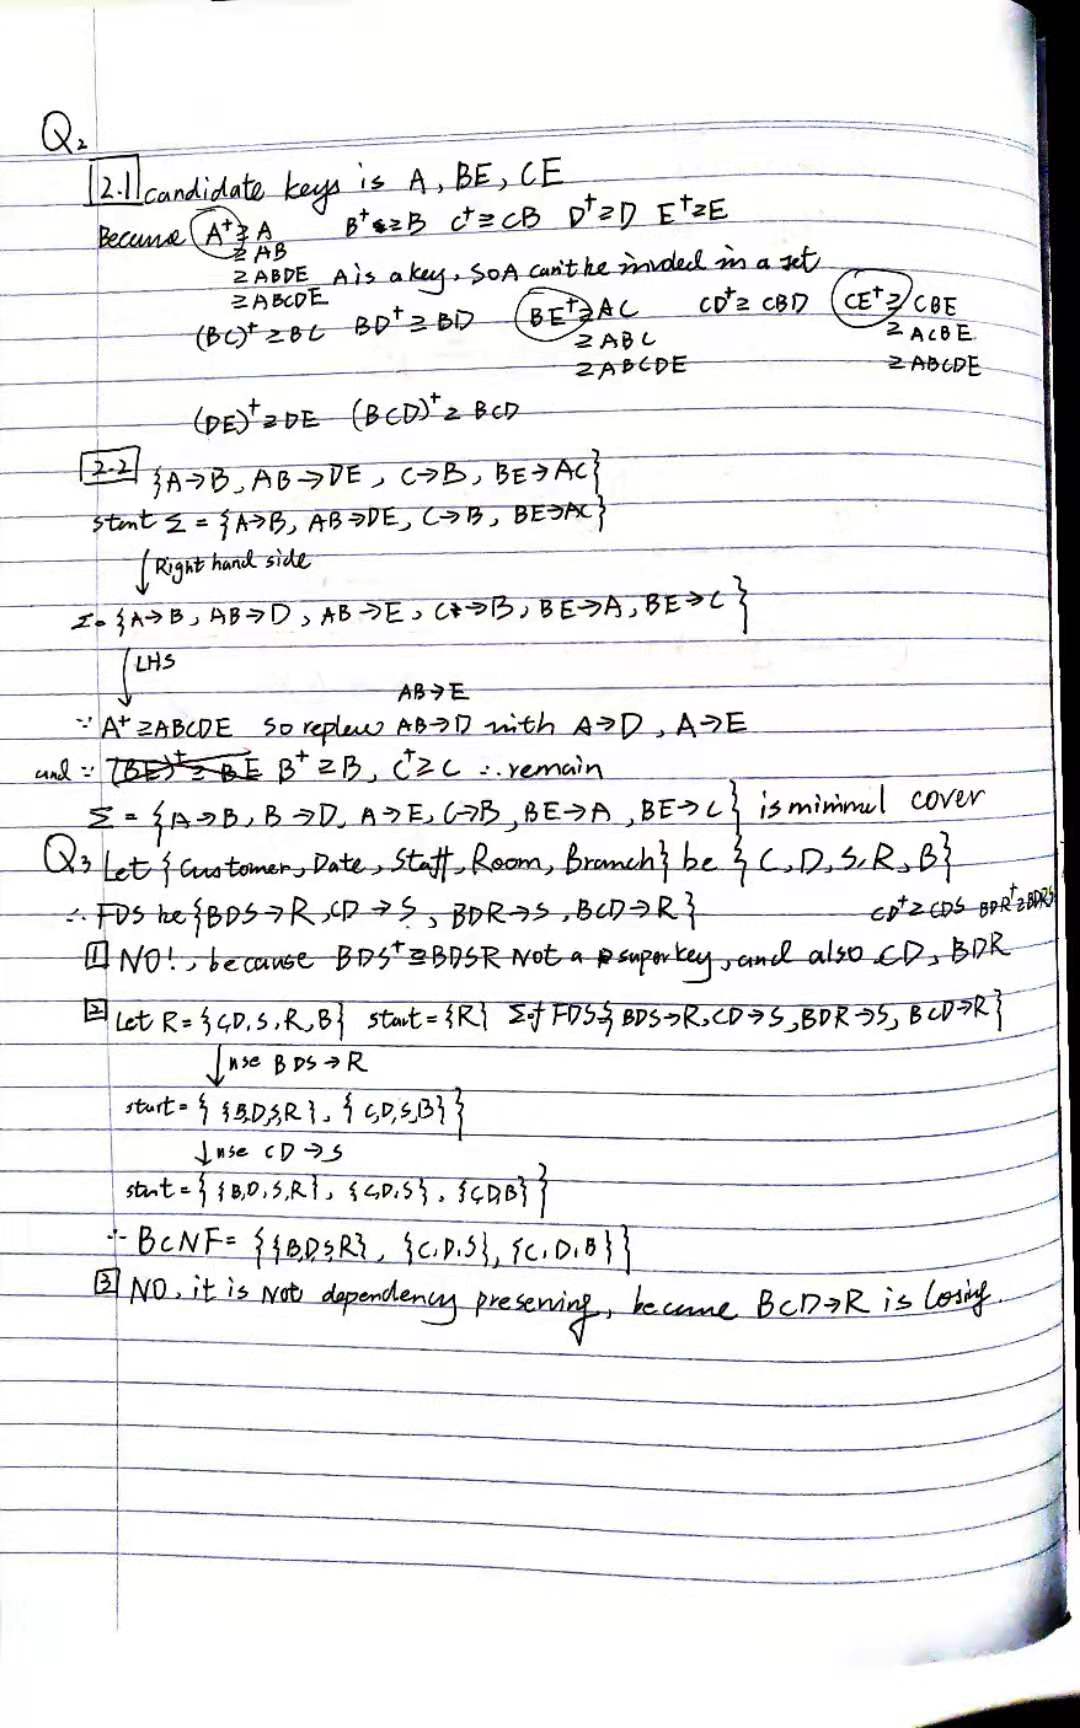 Q2
2.1 candidate keys is A, BE, CE
Because A⁺ ⊇ A B⁺ ⊇ B C⁺ ⊇ CB D⁺ ⊇ D E⁺ ⊇ E
⊇ AB
⊇ ABDE A is a key, so A can't be in a set
⊇ ABCDE
(BC)⁺ ⊇ BC BD⁺ ⊇ BD BE⁺ ⊇ AC CD⁺ ⊇ CBD CE⁺ ⊇ CBE
⊇ ABC ⊇ ACBE
⊇ ABCDE ⊇ ABCDE
(DE)⁺ ⊇ DE (BCD)⁺ ⊇ BCD
2.2 {A→B, AB→DE, C→B, BE→AC}
start Σ = {A→B, AB→DE, C→B, BE→AC}
↓ Right hand side
Σ = {A→B, AB→D, AB→E, C→B, BE→A, BE→C}
↓ LHS
AB→E
∵ A⁺ ⊇ ABCDE so replace AB→D with A→D, A→E
and ∵ (BE)⁺ ⊇ BE B⁺ ⊇ B, C⁺ ⊇ C ∴ remain
Σ = {A→B, B→D, A→E, C→B, BE→A, BE→C} is minimal cover
Q3 Let {Customer, Date, Staff, Room, Branch} be {C, D, S, R, B}
∴ FDS be {BDS→R, CD→S, BDR→S, BCD→R} CD⁺ ⊇ CDS BDR⁺ ⊇ BDRS
1 NO!, because BDS⁺ ⊇ BDSR Not a superkey, and also CD, BDR
2 Let R = {C,D,S,R,B} start = {R} Σ of FDS {BDS→R, CD→S, BDR→S, BCD→R}
↓ use BDS→R
start = { {B,D,S,R}, {C,D,S,B} }
↓ use CD→S
start = { {B,D,S,R}, {C,D,S}, {C,D,B} }
∴ BCNF = { {B,D,S,R}, {C,D,S}, {C,D,B} }
3 NO, it is Not dependency preserving, because BCD→R is losing.